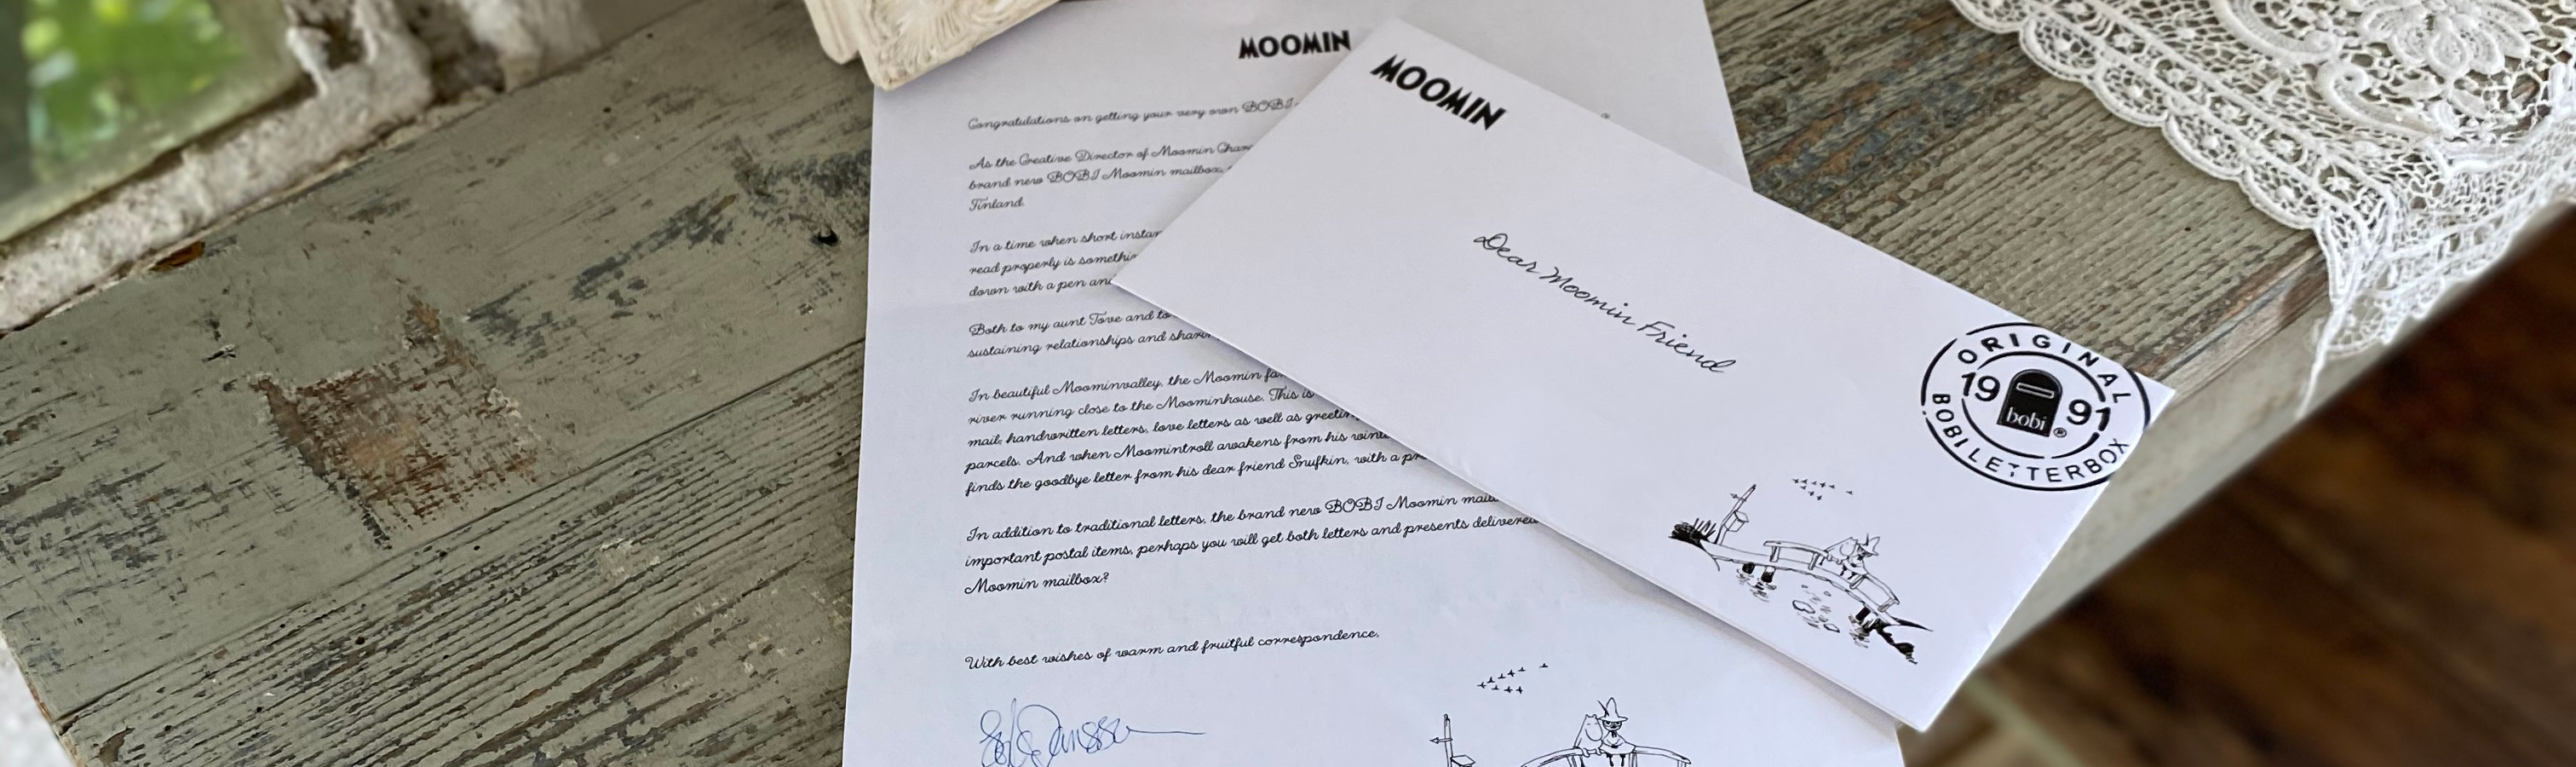 MOOMIN
Congratulations on getting your very own BOBI
As the Creative Director of Moomin
brand new BOBI Moomin mailbox,
Finland.
In a time when short
read properly is
down with a pen
Both to my aunt Tove and to
sustaining relationships and
In beautiful Moominvalley, the Moomin
river running close to the Moominhouse. This is
mail; handwritten letters, love letters as well as
parcels. And when Moomintroll awakens from his
finds the goodbye letter from his dear friend Snufkin, with a
In addition to traditional letters, the brand new BOBI Moomin
important postal items, perhaps you will get both letters and presents delivered
Moomin mailbox?
With best wishes of warm and fruitful correspondence,
MOOMIN
Dear Moomin Friend
ORIGINAL
19 91
bobi®
BOBI LETTERBOX